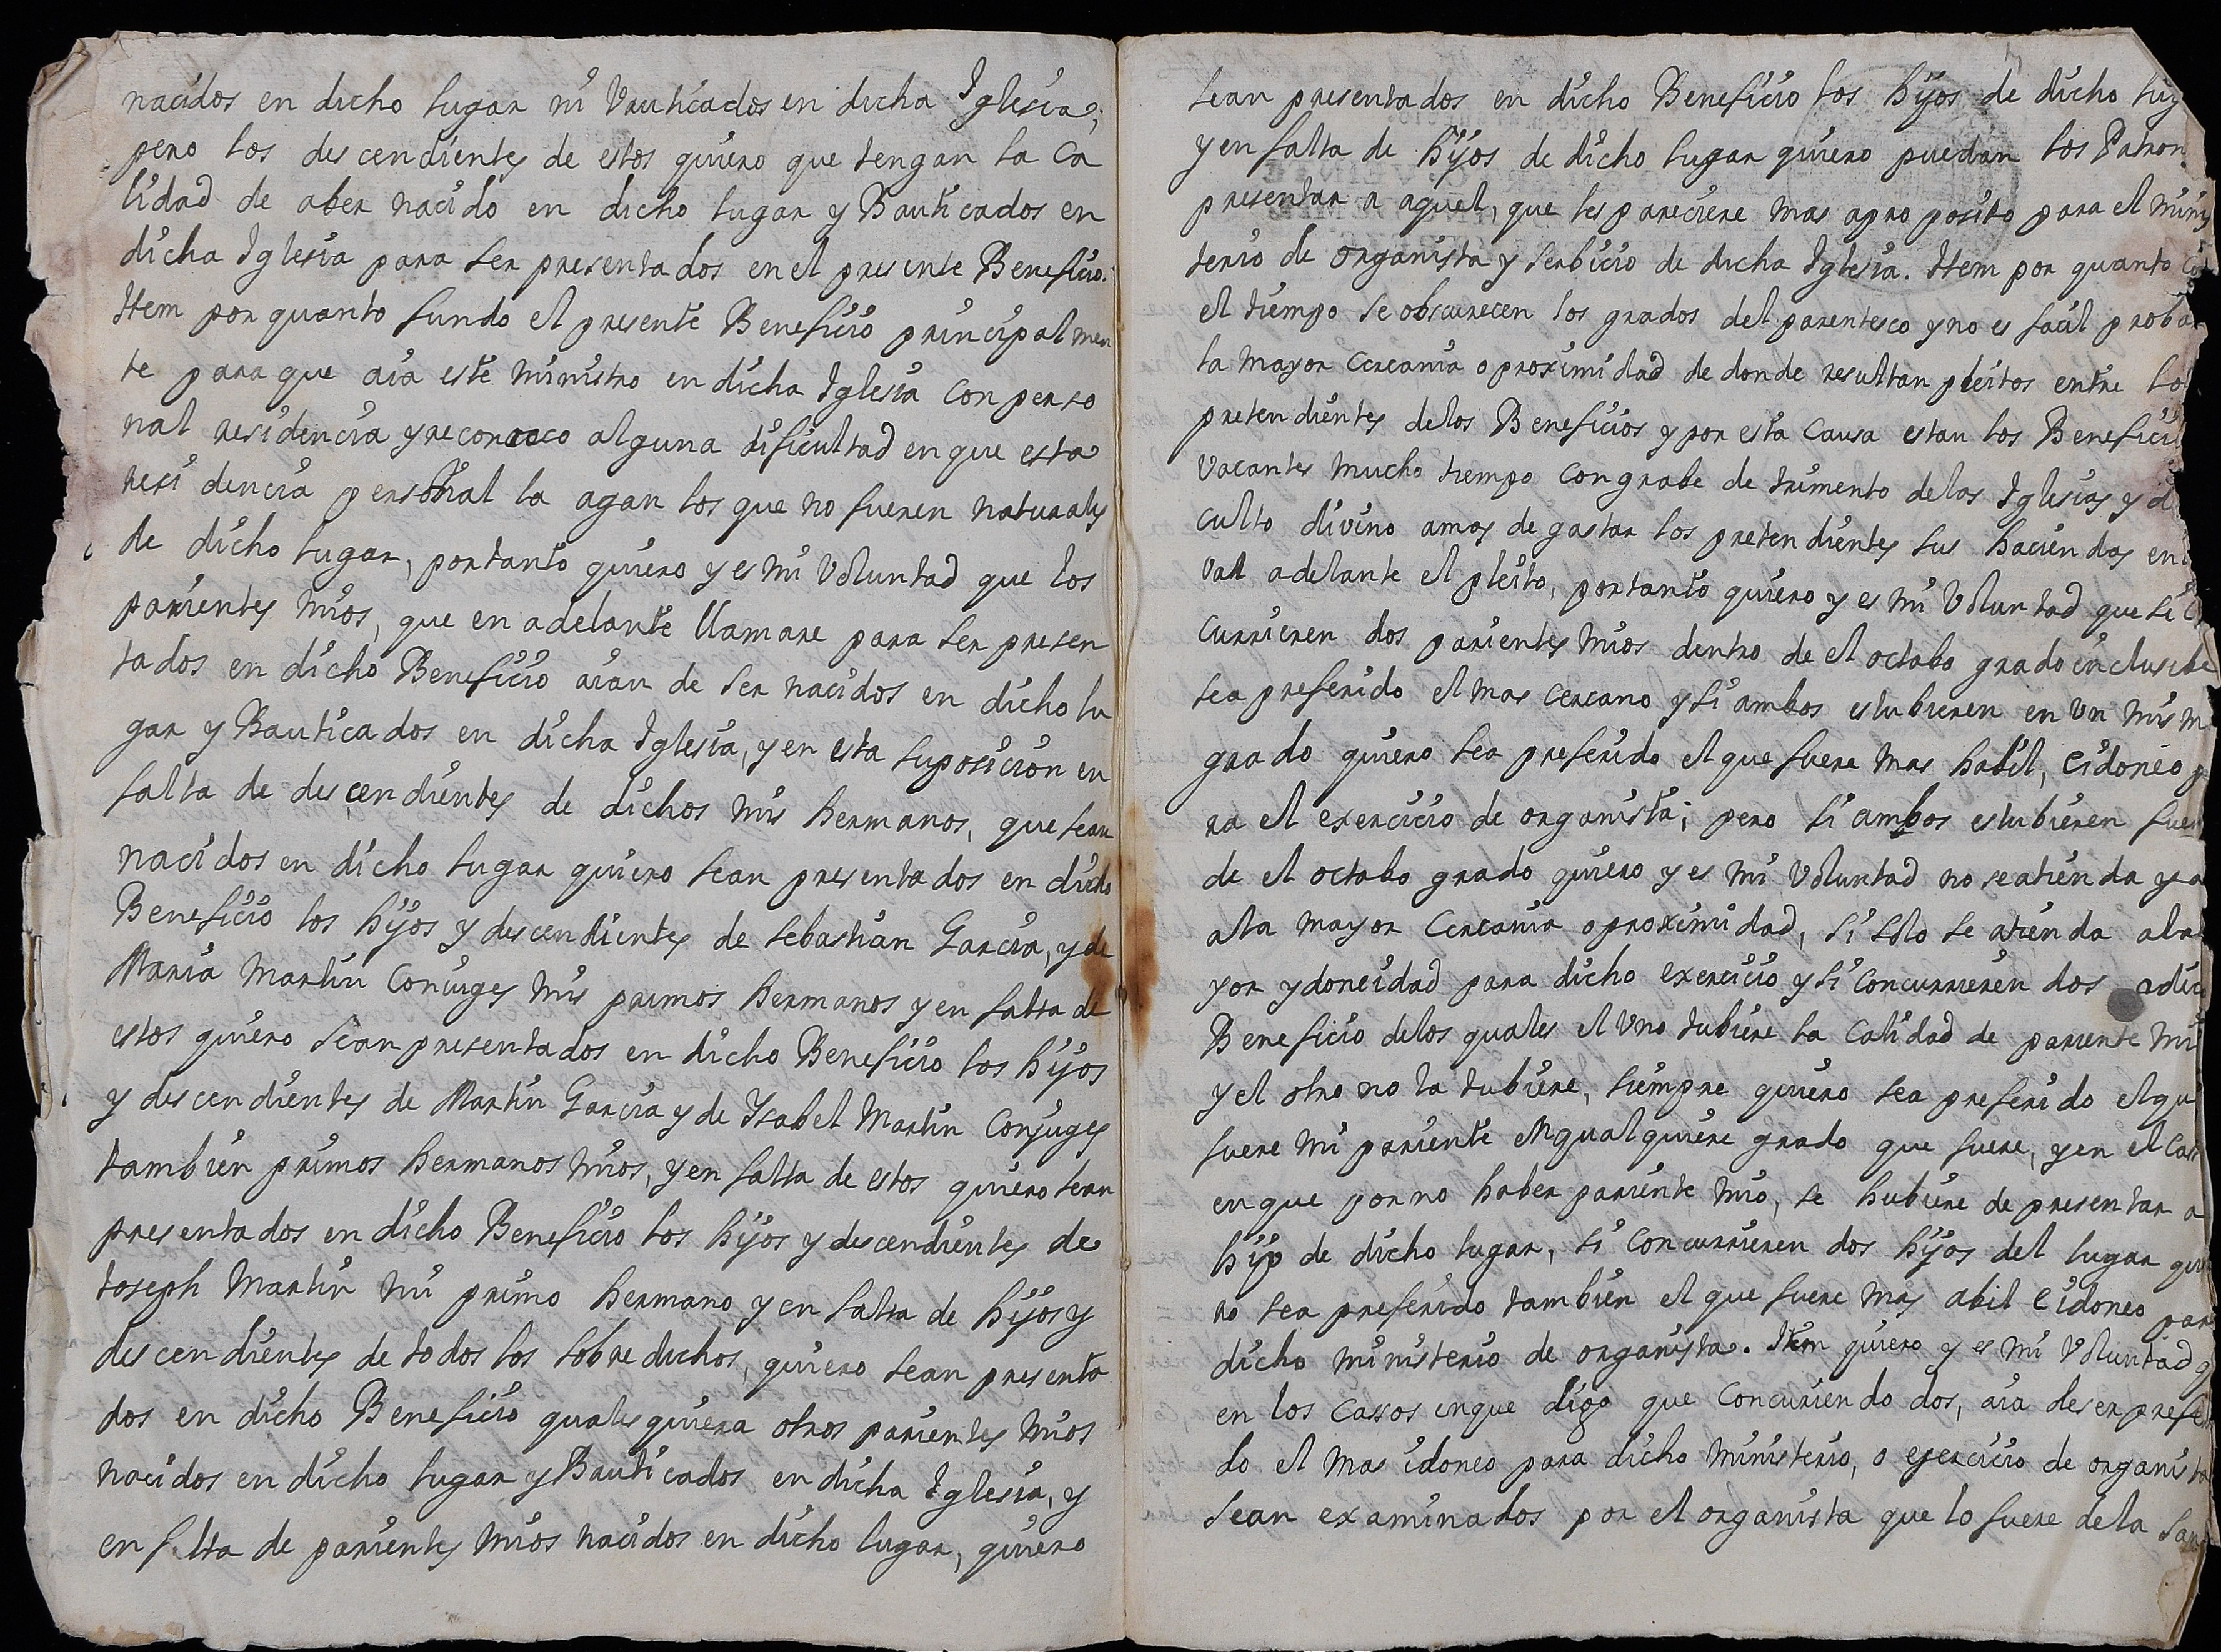 nacidos en dicho lugar ni Vauticados en dicha Iglesia;
pero los descendientes de estos quiero que tengan la ca
lidad de aber nacido en dicho lugar y Bauticados en
dicha Iglesia para ser presentados en el presente Beneficio.
Item por quanto fundo el presente Beneficio principalmen
te para que aia este Ministro en dicha Iglesia con perso
nal residencia y reconozco alguna dificultad en que esta
resi dencia personal la agan los que no fueren naturales
de dicho lugar, por tanto quiero y es mi Voluntad que los
parientes mios, que en adelante llamare para ser presen
tados en dicho Beneficio aian de ser nacidos en dicho lu
gar y Bauticados en dicha Iglesia, y en esta suposicion en
falta de descendientes de dichos mis hermanos, que sean
nacidos en dicho lugar quiero sean presentados en dicho
Beneficio los hijos y descendientes de sebastian Garcia, y de
Maria Martin Coniuges mis primos hermanos y en falta de
estos quiero sean presentados en dicho Beneficio los hijos
y descendientes de Martin Garcia y de Isabel Martin Conjuges
tambien primos hermanos mios, y en falta de estos quiero sean
presentados en dicho Beneficio los hijos y descendientes de
Joseph Martin mi primo hermano, y en falta de hijos y
descendientes de todos los sobredichos, quiero sean presenta
dos en dicho Beneficio qualesquiera otros parientes mios
nacidos en dicho lugar y Bauticados en dicha Iglesia, y
en falta de parientes mios nacidos en dicho lugar, quiero
sean presentados en dicho Beneficio los hijos de dicho lug
y en falta de hijos de dicho lugar quiero puedan los Patron
presentar a aquel, que les pareciere mas apro posito para el Minis
terio de organista y serbicio de dicha Iglesia. Item por quanto Con
el tiempo se obscurecen los grados del parentesco y no es facil probar
la mayor Cercania o proximidad de donde resultan pleitos entre los
pretendientes de los Beneficios y por esta Causa estan los Benefici
Vacantes mucho tiempo con grabe detrimento de las Iglesias y d
culto divino amas de gastar los pretendientes sus haciendas en
var adelante el pleito, por tanto quiero y es mi Voluntad que si C
currieren dos parientes mios dentro de el octabo grado inclusibe
sea preferido el mas cercano y si ambos estubieren en un mism
grado quiero sea preferido el que fuere mas habil, e idoneo p
ra el exercicio de organista; pero si ambos estubieren fuer
de el octabo grado quiero y es mi Voluntad no se atienda ya
a la mayor Cercania o proximidad, si solo se atienda a la
yor ydoneidad para dicho exercicio y si concurrieren dos a dic
Beneficio de los quales el Uno tubiere la calidad de pariente mi
y el otro no la tubiere, siempre quiero sea preferido el qu
fuere mi pariente en qualquiere grado que fuere, y en el Cas
en que por no haber pariente mio, se hubiere de presentar a
hijo de dicho lugar, si Concurrieren dos hijos del lugar quie
ro sea preferido tambien el que fuere mas abil e idoneo para
dicho ministerio de organista. Item quiero y es mi Voluntad q
en los Cassos en que digo que Concuriendo dos, aia de ser prefer
do el mas idoneo para dicho Ministerio, o ejercicio de organista
sean examinados por el organista que lo fuere de la San